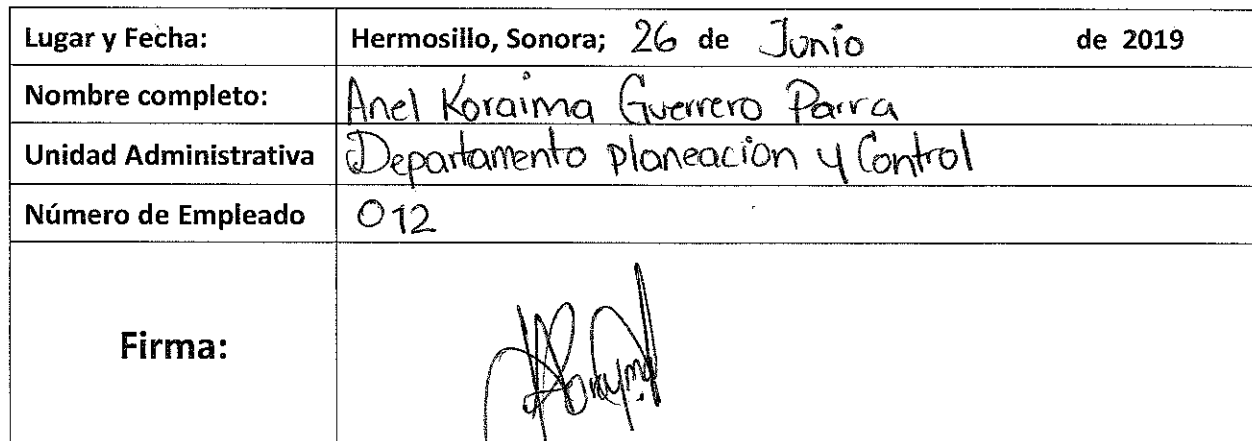 Lugar y Fecha: Hermosillo, Sonora; 26 de Junio de 2019
Nombre completo: Anel Koraima Guerrero Parra
Unidad Administrativa Departamento planeacion y Control
Número de Empleado 012
Firma: